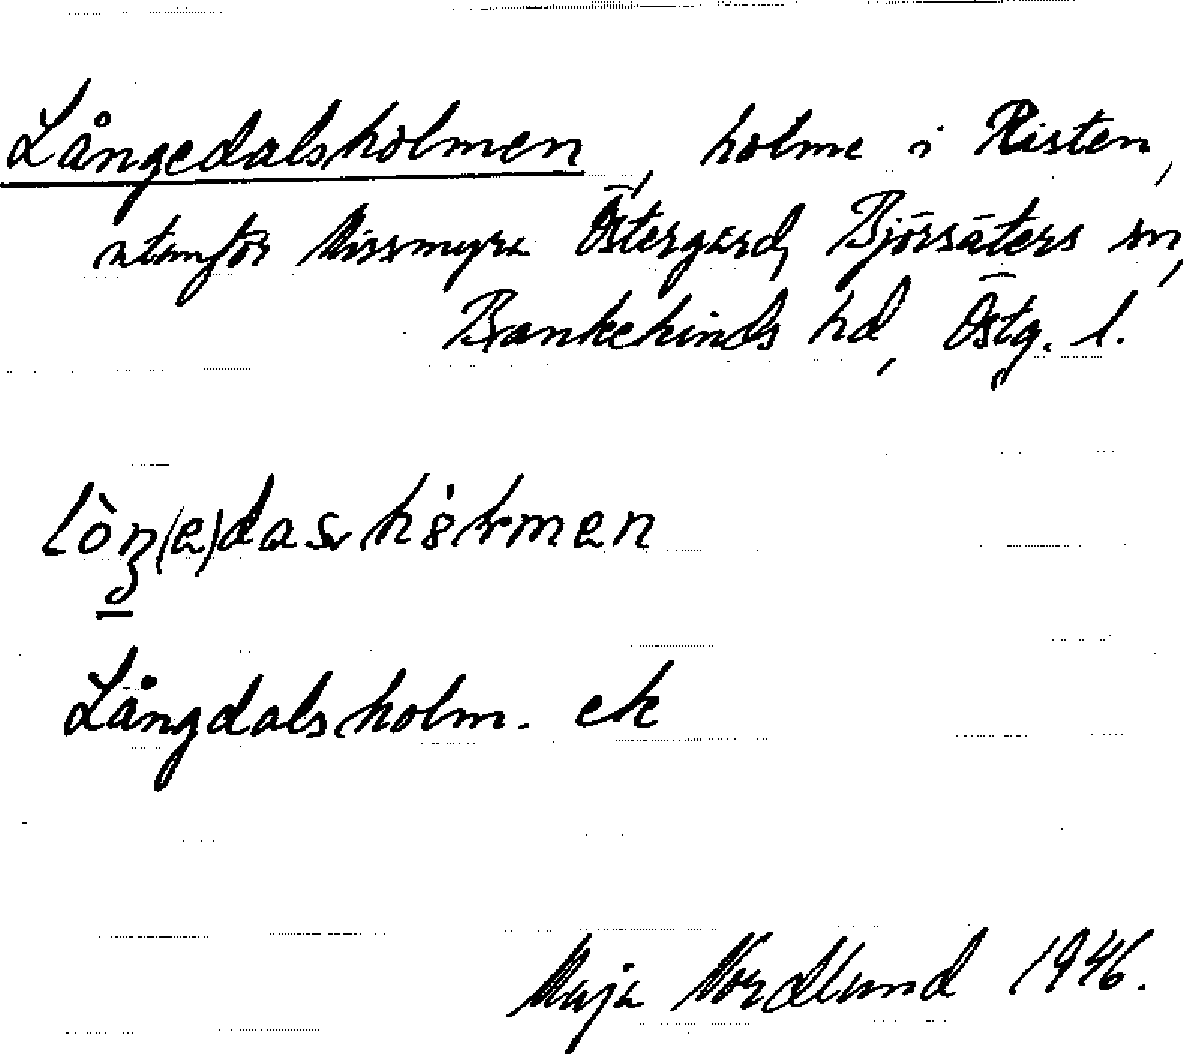 Långedalsholmen, holme i Risten,
utanför Missmyra Östergård, Björsäters sn,
Bankekinds hd, Östg. l.
Långdalsholm. ek
Maja Nordlund 1946.